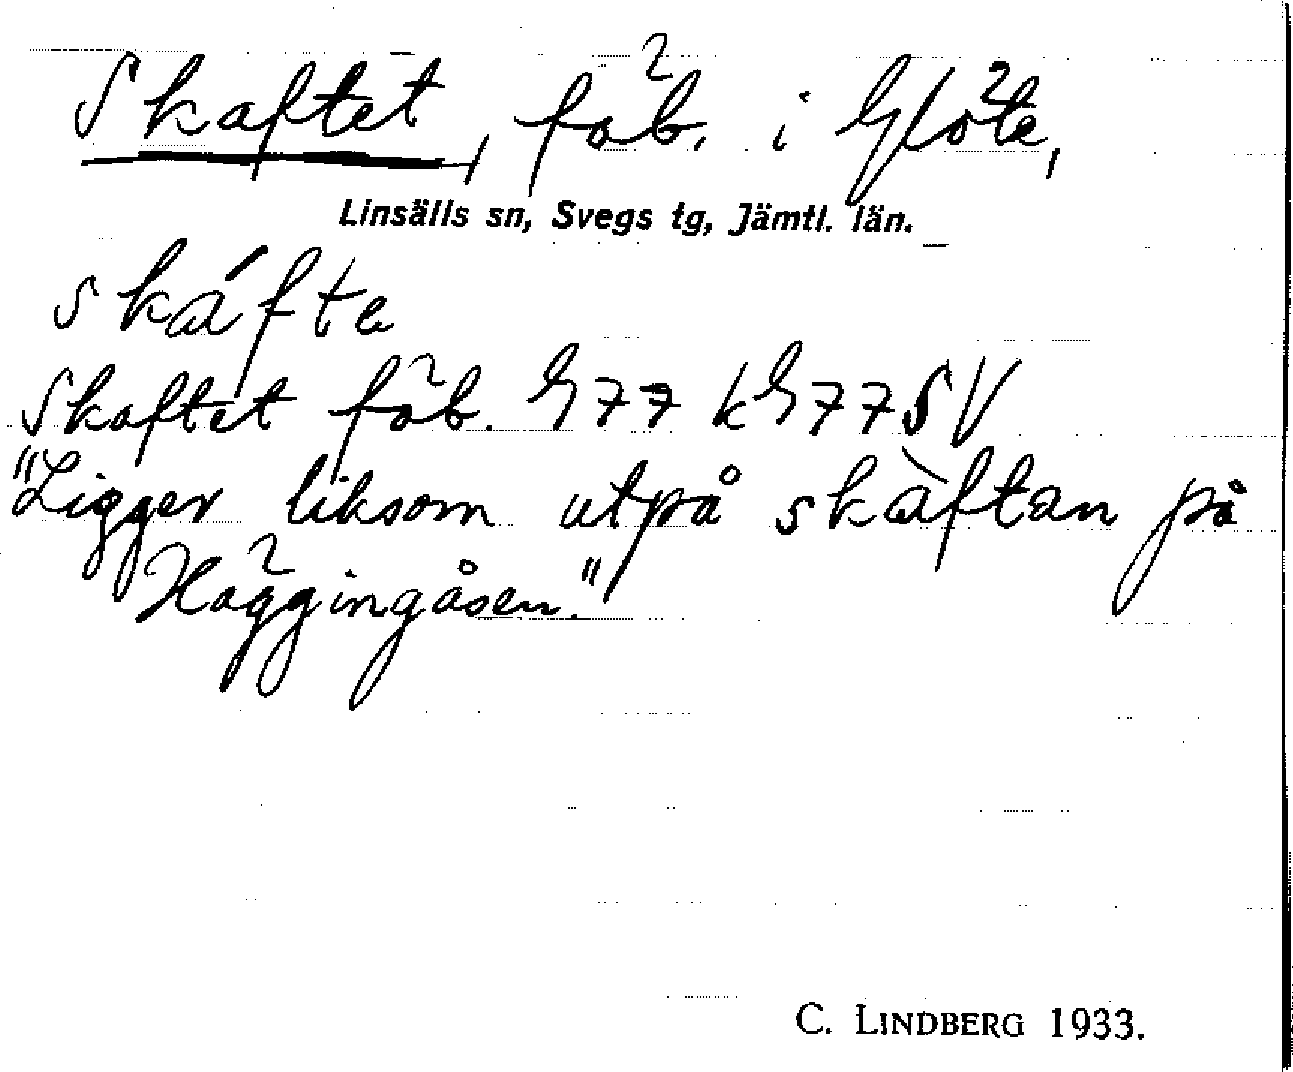 Skaftet, fäb. i Glöte,
Linsälls sn, Svegs tg, Jämtl. län.
skáfte
Skaftet fäb. G77 kG77SV
"Ligger liksom utpå skàftan på
Häggingåsen."
C. LINDBERG 1933.